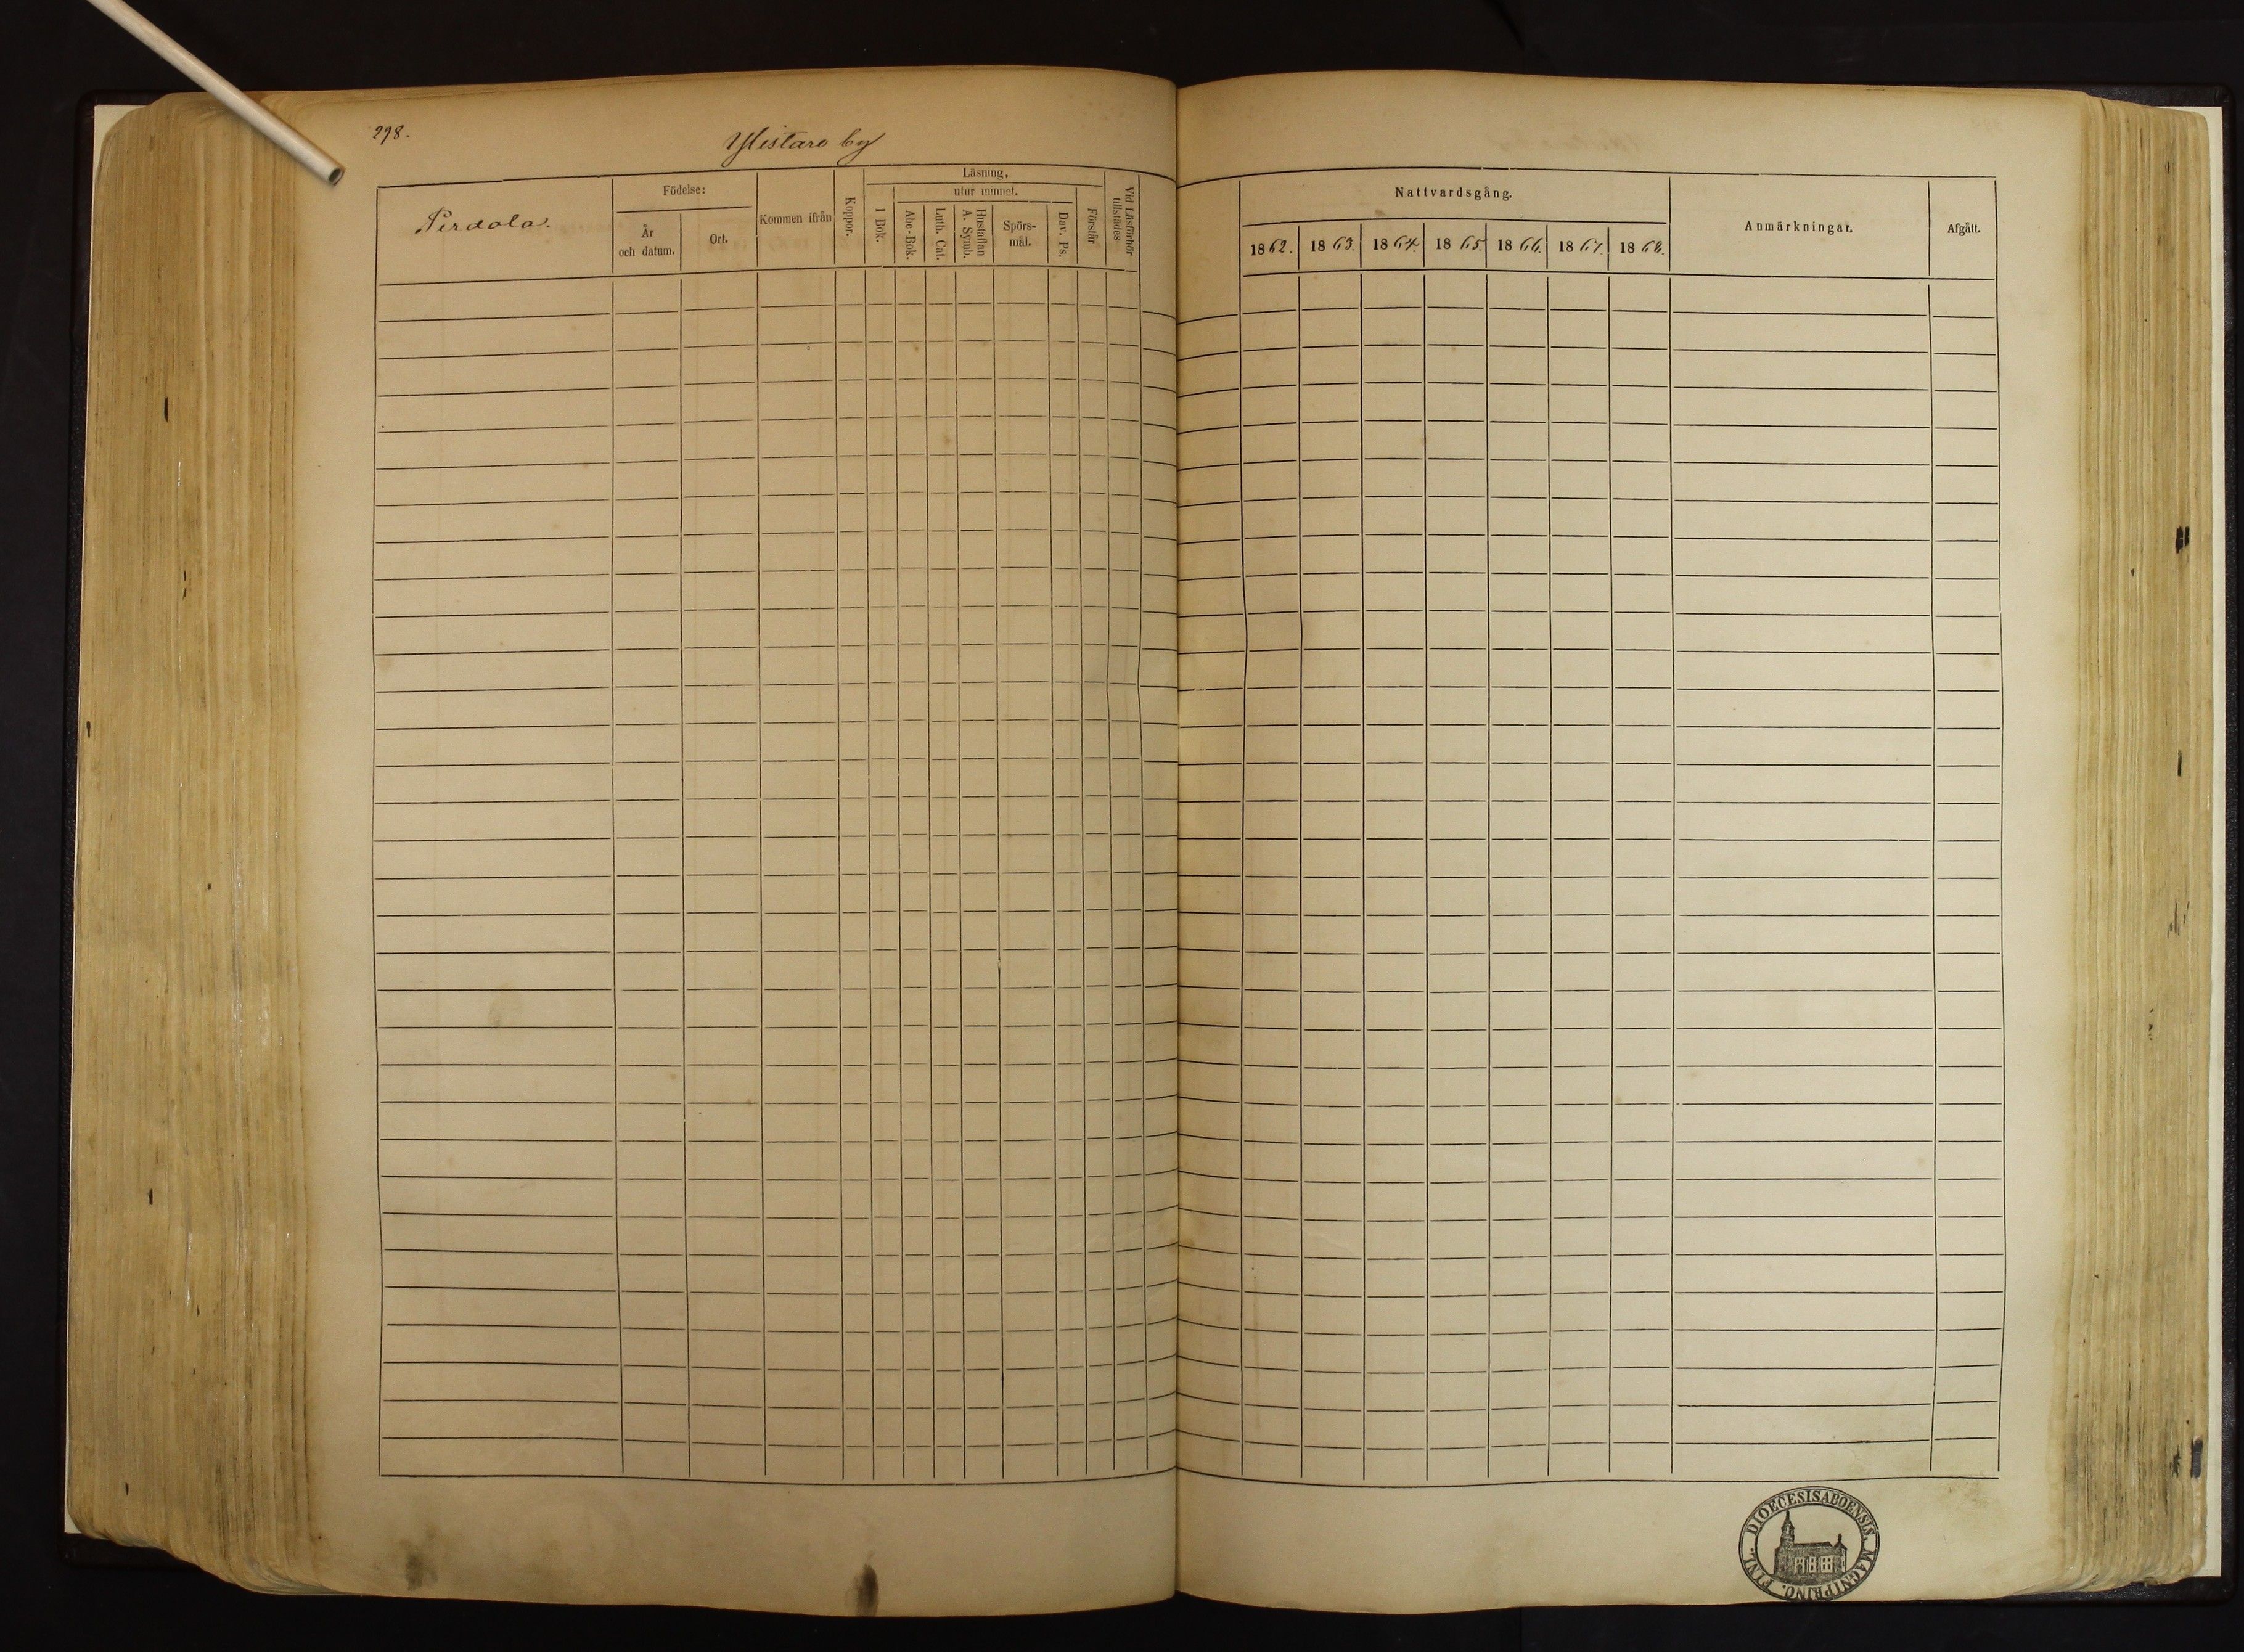 298.
Ylistaro by
Perdola.
Födelse:
År
och datum.
Ort.
Kommen ifrån
Koppor.
Läsning.
utur minnet.
I Bok.
Abc-Bok.
Luth. Cat.
Hustaflan
A. Symb.
Spörs-
mål.
Dav. Ps.
Förstår
Vid Läsförhör
tillstädes
Nattvardsgång.
1862. 1863. 1864. 1865. 1866. 1867. 1868.
Anmärkningar.
Afgått.
FINL. DIOECESIS ABOENSIS MAGNI PRINC.